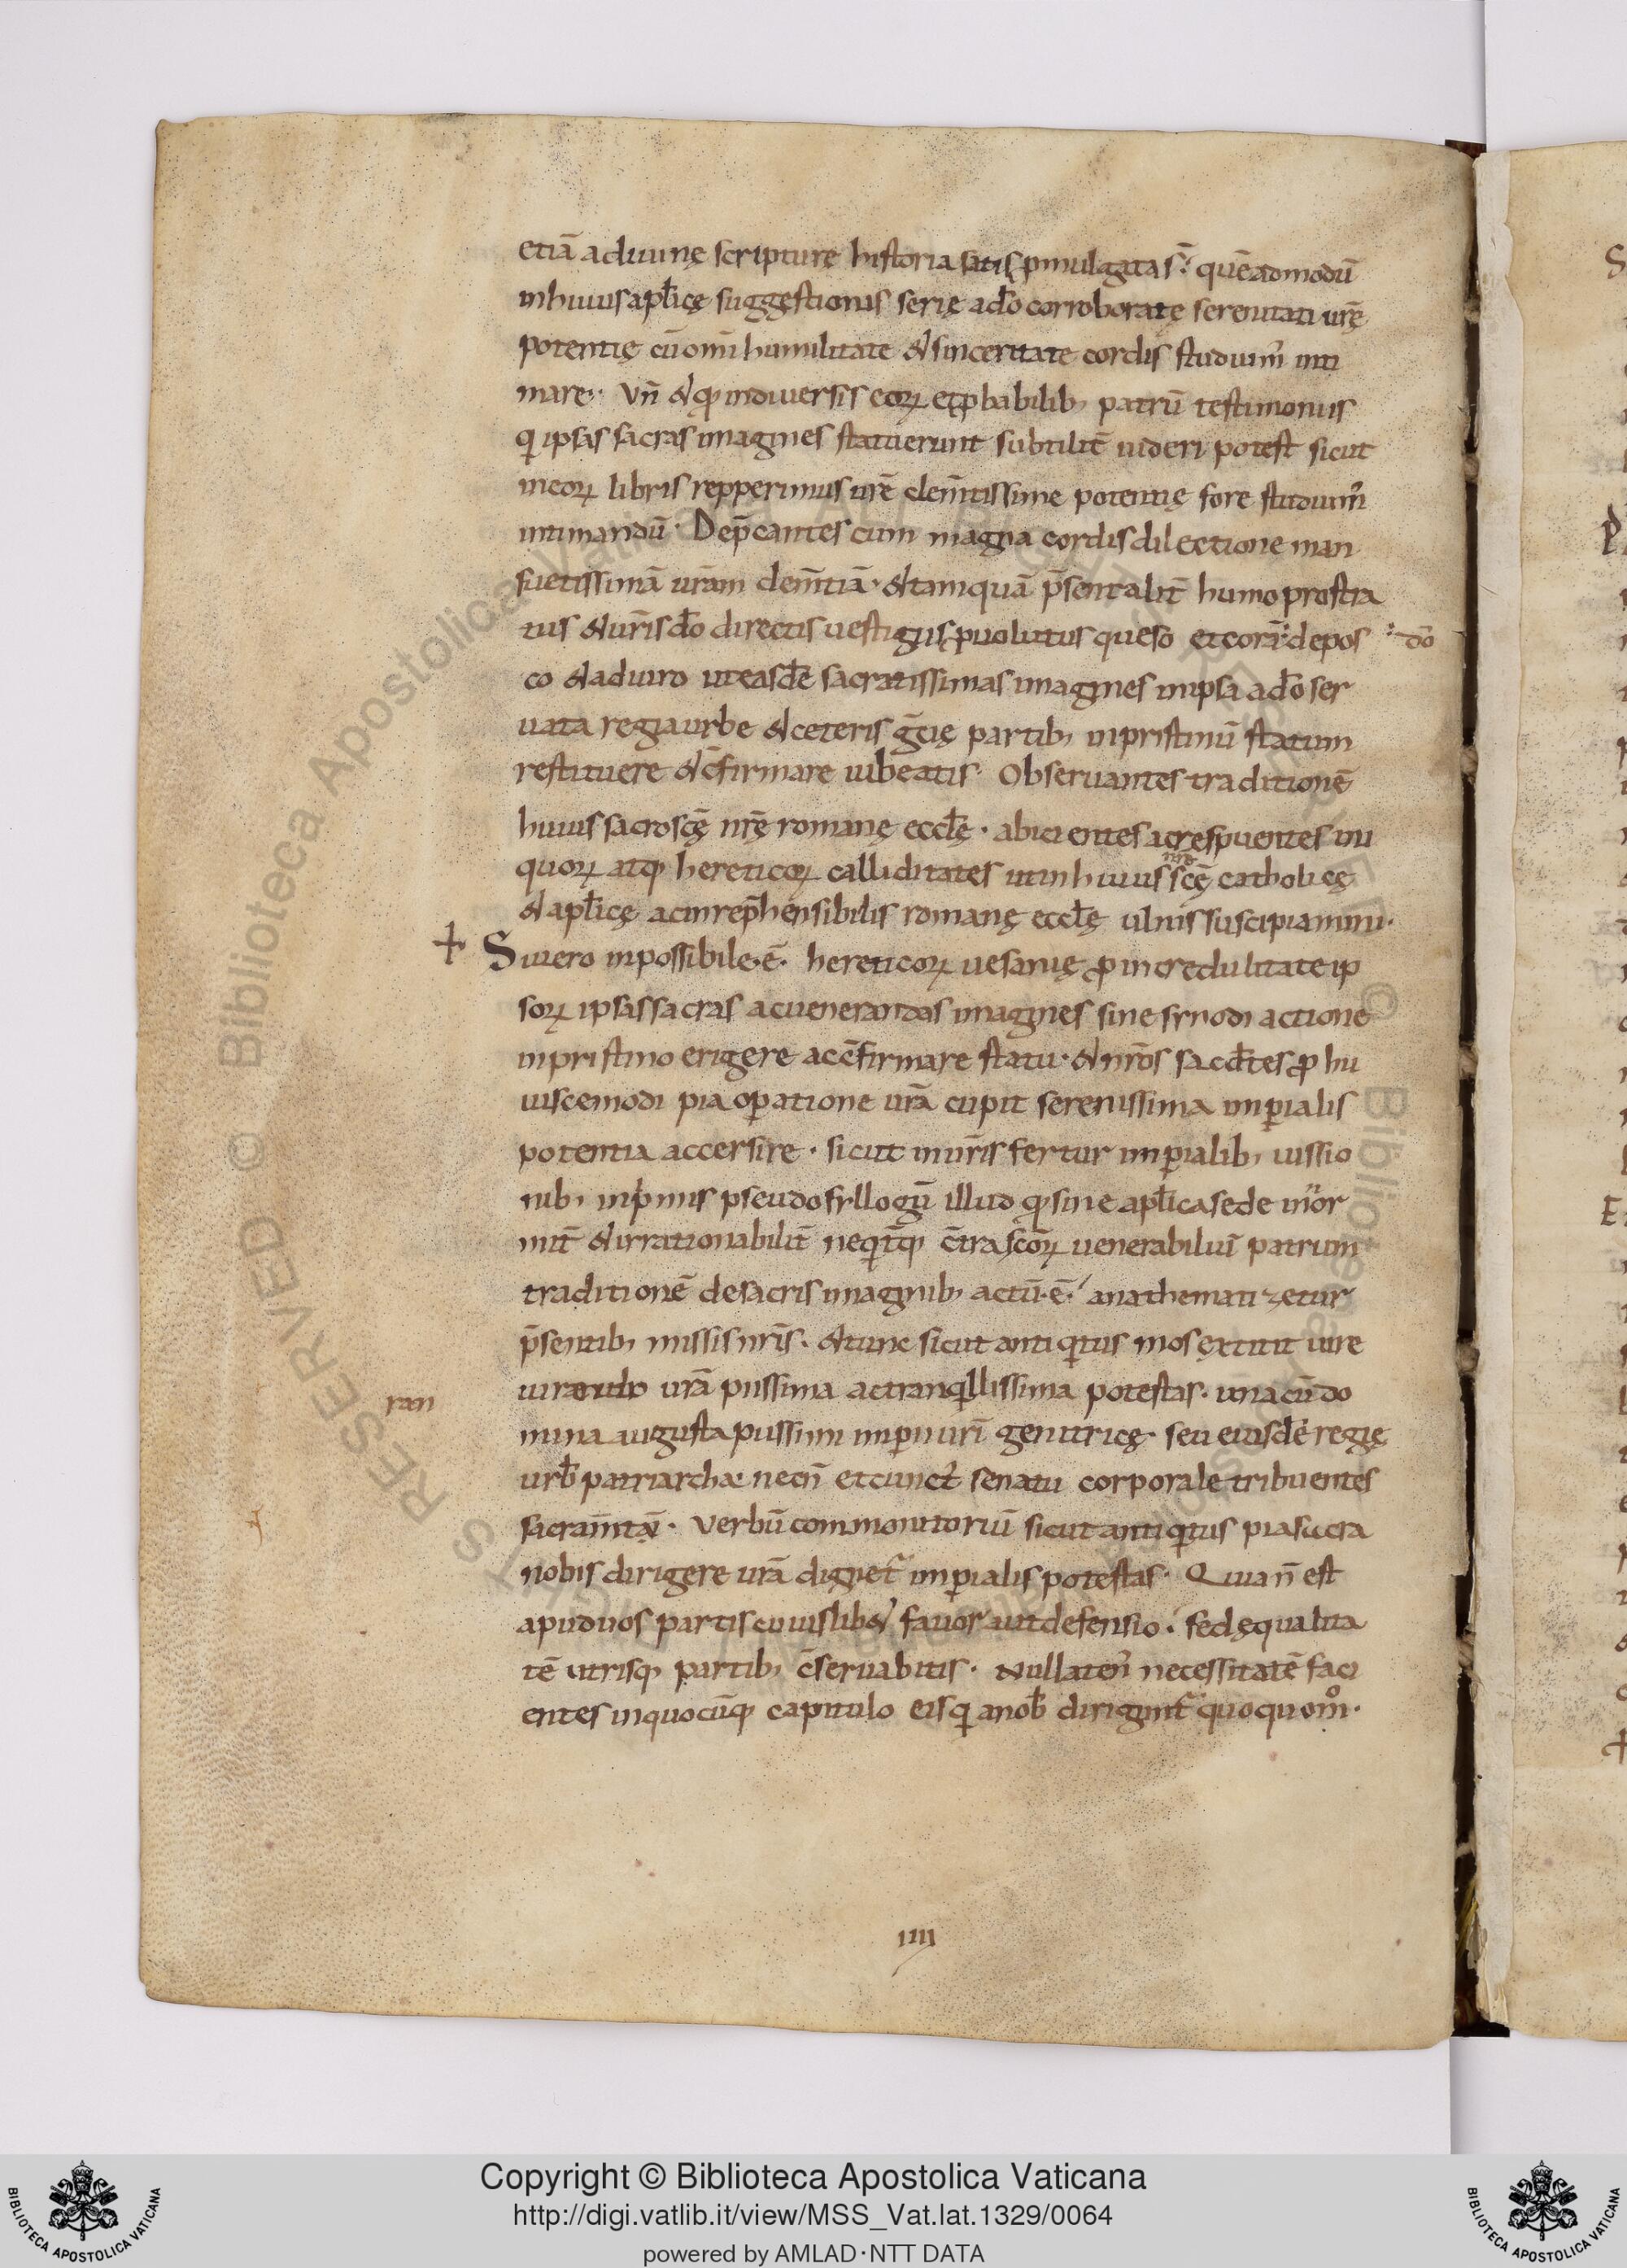 etiā a diuinę scripturę historia satis ꝓmulgatas: quēadmodū
in huius apl̄icę suggestionis serię a dō corroboratę serenitati urę̄
potentię cū om̄i humilitate & sinceritate cordis studuim᾽ inti
mare. Vn̄ & ꝙ in diuersis eoꝝ et ꝓbabilib; patrū testimoniis
q ipsas sacras imagines statuerunt subtilit̄ uideri potest sicut
in eoꝝ libris repperimus urē clem̄tissime potentię fore studuim᾽
intimandū. Dep̄cantes cum magna cordis dilectione man
suetissimā urām clem̄tiā. & tamquā p̄sentalit̄ humo prostra
tus & uris̄ dō directis uestigiis ꝓuolutus queso et corā depos dō
co & adiuro ut easdē sacratissimas imagines in ipsa a dō ser
uata regia urbe & ceteris gc̄ię partib; in pristinū statum
restituere & c̄firmare iubeatis. Obseruantes traditionē
huius sacroscę̄ nrę̄ romanę eccl̄ę. abicientes ac respuentes ini
quoꝝ atq; hereticoꝝ calliditates ut in huius scę̄ nrę catholicę
& apl̄icę ac inrep̄hensibilis romanę eccl̄ę ulnis suscipiamini.
+ Si uero inpossibile ē. hereticoꝝ uesanię ꝓ incredulitate ip
soꝝ ipsas sacras ac uenerandas imagines sine synodi actione
in pristino erigere ac c̄firmare statu. & nros̄ sacdtes̄ ꝓ hu
iuscemodi pia oꝑatione urā cupit serenissima imꝑialis
potentia accersire. sicut in uris̄ fertur imꝑialib; iussio
nib; inprimis pseudosyllogū illud ꝙ sine apl̄ica sede inor
mit̄ & irrationabilit̄ neqt̄q; c̄tra scōꝝ uenerabiliū patrum
traditionē de sacris imaginib; actū ē. anathematizetur
p̄sentib; missis nris̄. & tunc sicut antiqtus mos extitit iure
ran iurando urā piissima ac tranqllissima potestas. una cū do
mina augusta piissimi imꝑii uri̅ genitricę. seu eiusdē regię
urb̄ patriarcha necn̄ et cuncto senatu corporale tribuentes
sacram̄tū. Verbū commonitoriū sicut antiqtus pia sacra
nobis dirigere urā dignet᾽ imꝑialis potestas. Quia n̄ est
apud uos partis cuiuslib& fauor aut defensio. sed ęqualita
tē utrisq; partib; c̄seruabitis. Nullaten᾽ necessitatē faci
entes in quocūq; capitulo eis q a nob̄ dirigunt᾽ quoquo mº.
IIII
Copyright © Biblioteca Apostolica Vaticana
http://digi.vatlib.it/view/MSS_Vat.lat.1329/0064
powered by AMLAD·NTT DATA